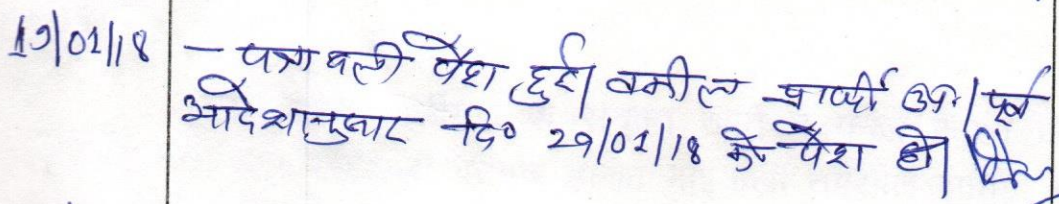 19/01/18 – पत्रावली पेश हुई। वकील प्रार्थी उप.। पूर्व
आदेशानुसार दि० 29/01/18 को पेश हो।